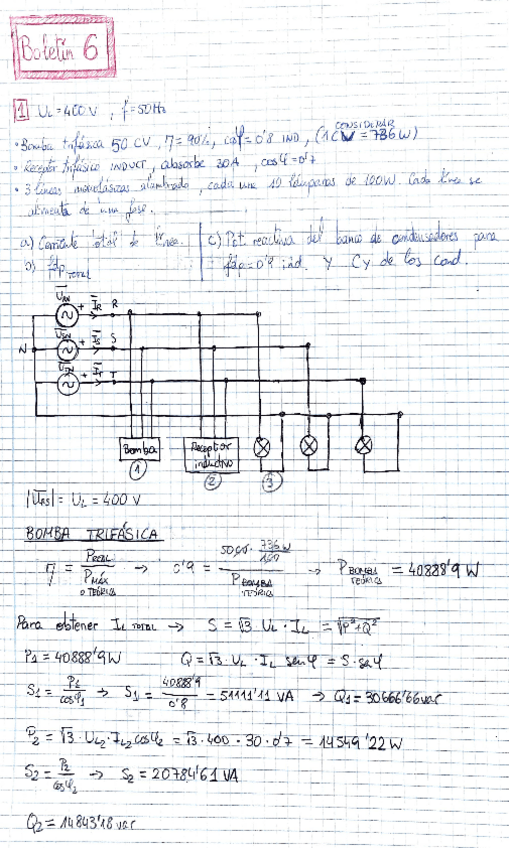 Boletín 6
1 UL = 400 V , f = 50 Hz
CONSIDERAR
• Bomba trifásica 50 CV, η = 90%, cosφ = 0'8 IND, (1CV = 736 W)
• Receptor trifásico INDUCT, absorbe 30A, cosφ = 0'7
• 3 líneas monofásicas alumbrado, cada una 10 lámparas de 100W. Cada línea se
alimenta de una fase.
a) Corriente total de línea.
b) fdp TOTAL
c) Pot reactiva del banco de condensadores para
fdp = 0'9 ind. y CY de los cond.
URN + IR R
N + IS S
+ IT T
Bomba
1
Receptor
inductivo
2
3
|URS| = UL = 400 V
BOMBA TRIFÁSICA
η = PREAL / PMÁX O TEÓRICA → 0'9 = 50CV · 736 W / 1CV / PBOMBA TEÓRICA → PBOMBA TEÓRICA = 40888'9 W
Para obtener IL TOTAL → S = √3 · UL · IL = √P²+Q²
P1 = 40888'9 W Q = √3 · UL · IL senφ = S · senφ
S1 = P1 / cosφ1 → S1 = 40888'9 / 0'8 = 51111'11 VA → Q1 = 30666'66 var
P2 = √3 · UL2 · IL2 cosφ2 = √3 · 400 · 30 · 0'7 = 14549'22 W
S2 = P2 / cosφ2 → S2 = 20784'61 VA
Q2 = 14843'18 var